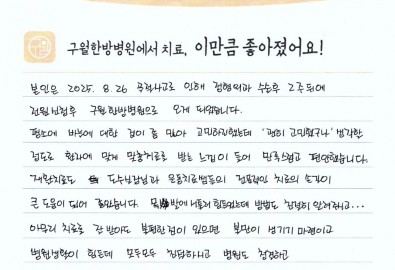 구월한방병원에서 치료, 이만큼 좋아졌어요!
본인은 2025. 8. 26 공적사고로 인해 정형외과 수술후 2주뒤에
전원 구월한방병원으로 오게 되었습니다.
평소에 바늘에 대한 겁이 좀 많아 고민하긴했는데 '괜히 고민했구나' 생각한
정도로 환자에 맞게 맞춤치료로 받는 느낌이 들어 만족스럽고 편안했습니다.
재활치료도 도수실장님과 운동치료쌤들의 전문적인 치료의 손길이
큰 도움이 되어 놀랐습니다. 방에 힘들었는데 방법도 친절히 알려주시고...
아무리 치료를 잘 받아도 불편한 점이 있으면 불만이 생기기 마련이고
병원생활이 힘든데 모두모두 친절하시고 병원도 청결하고